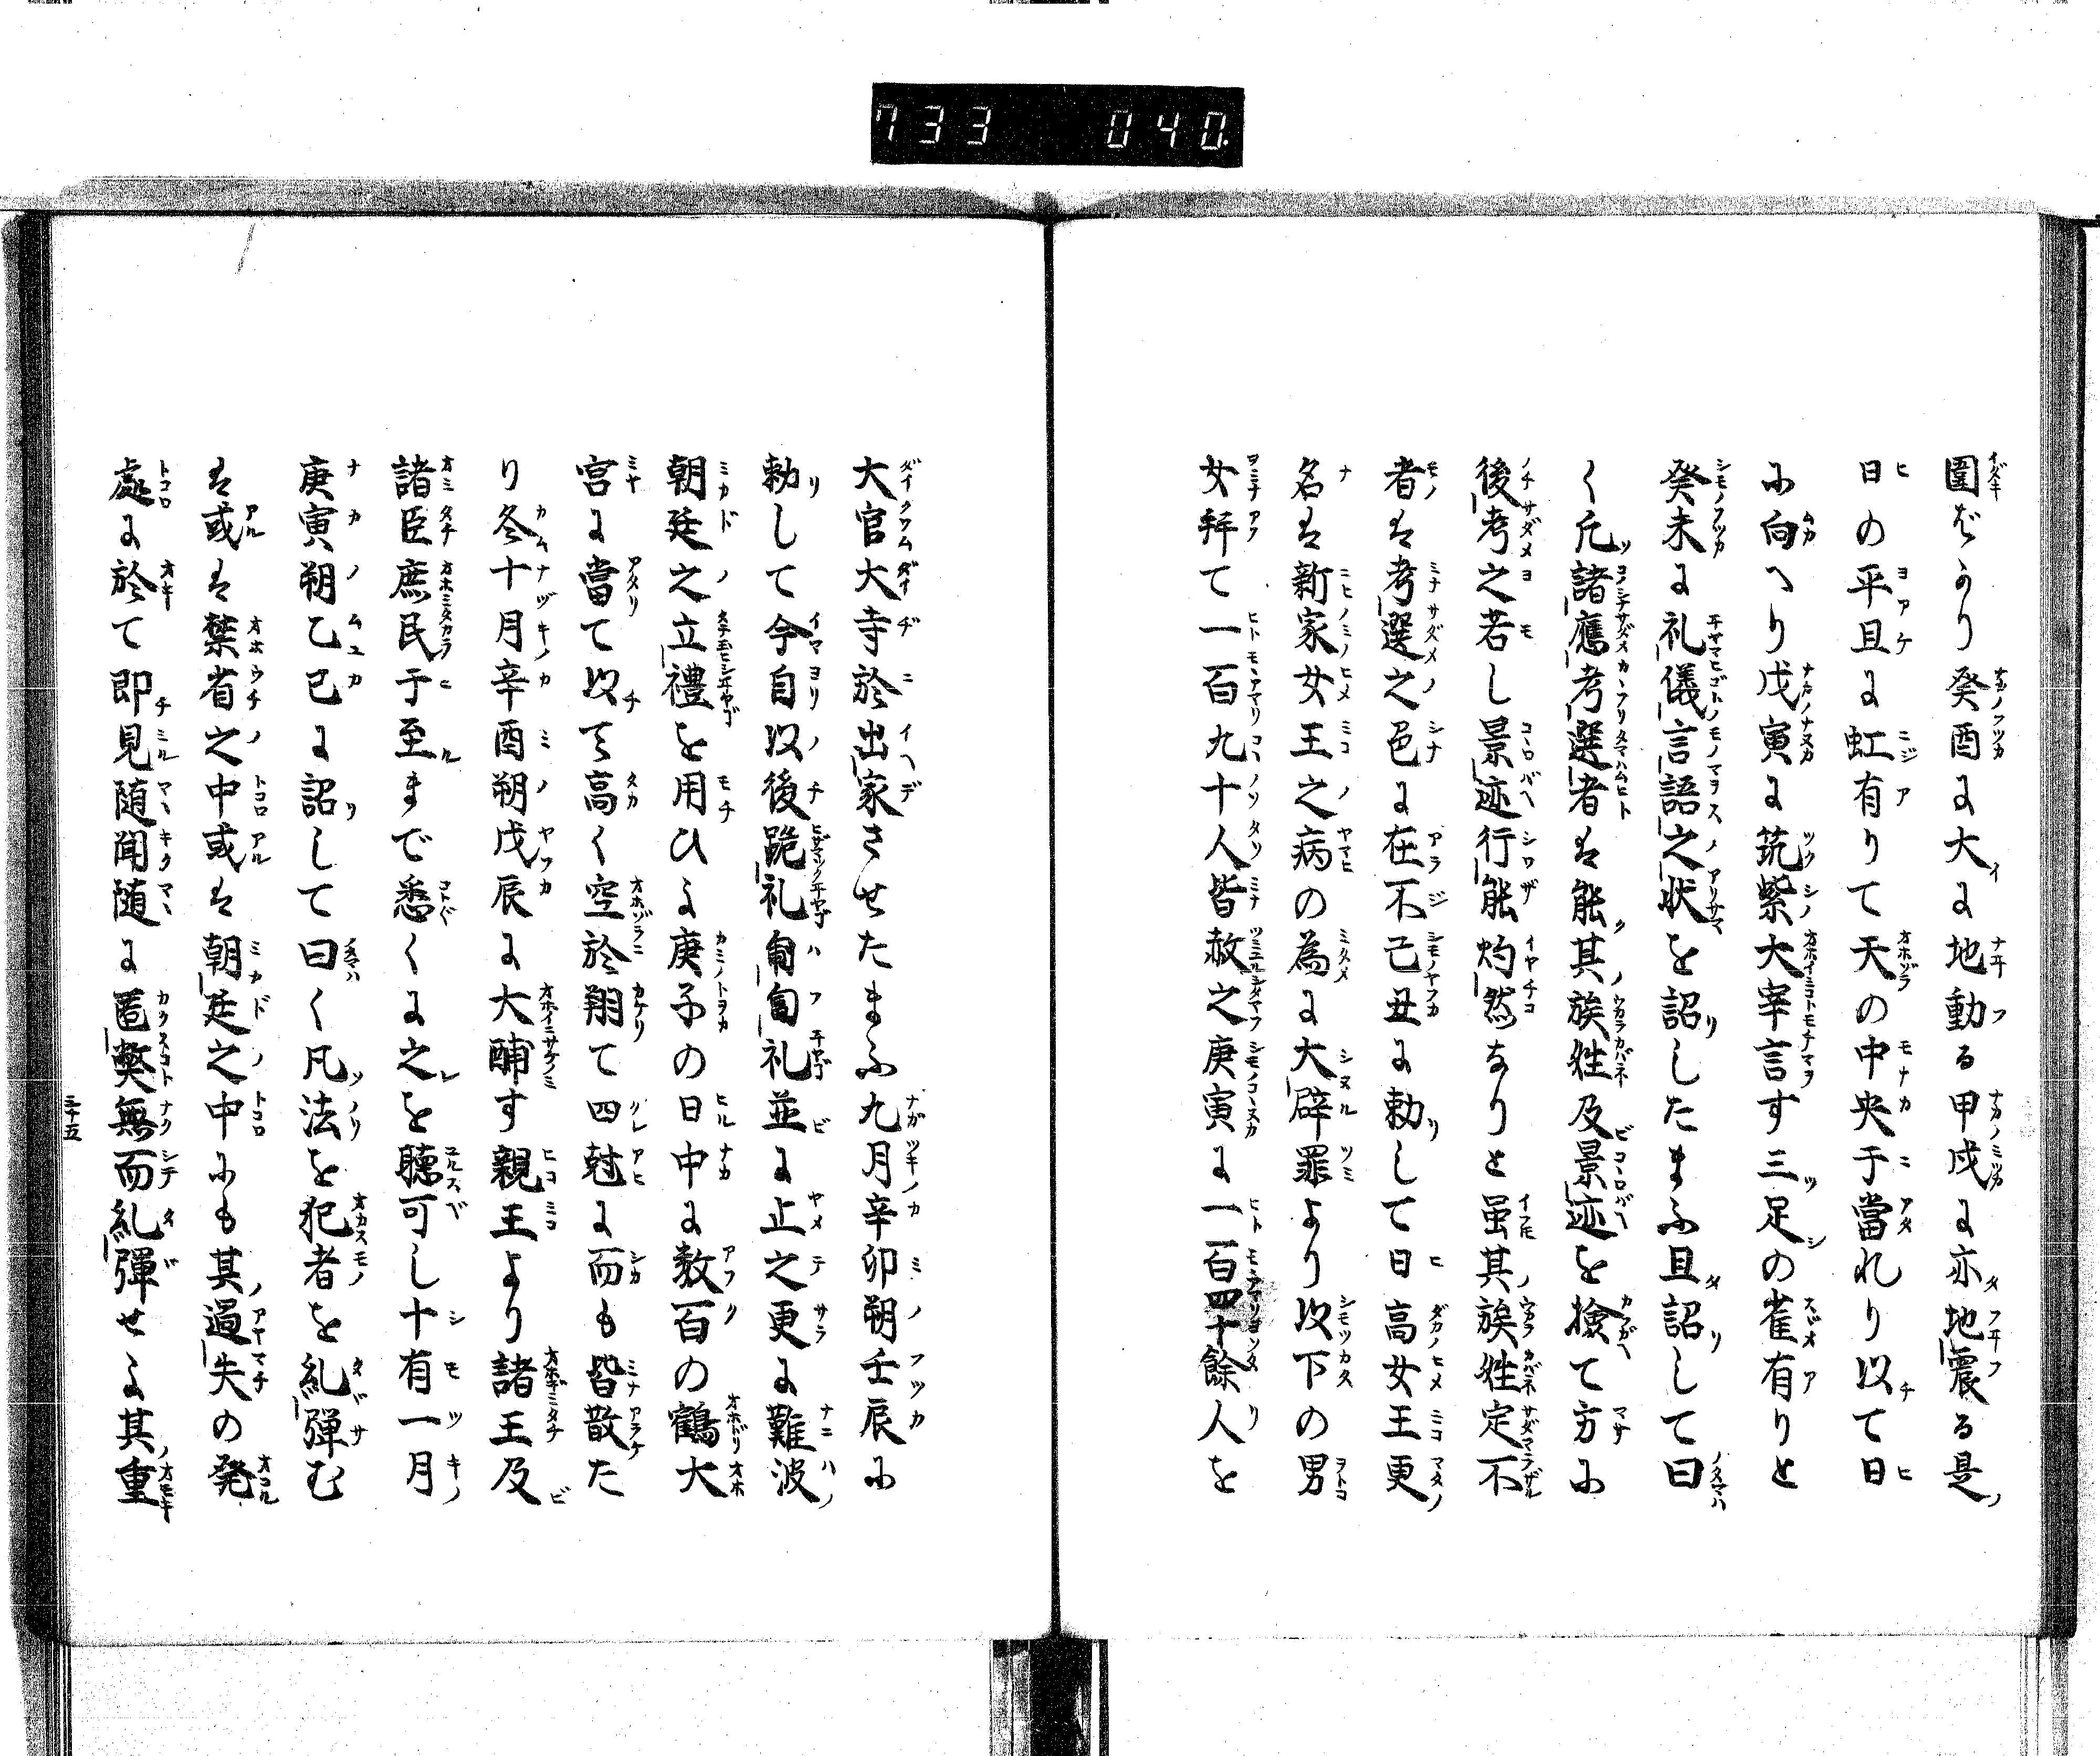 733 040
圍ばかり癸酉に大に地動る甲戌に亦地震る是
日の平旦に虹有りて天の中央于當れり以て日
に向へり戊寅に筑紫大宰言す三足の雀有りと
癸未に礼儀言語之状を詔したまふ且詔して曰
く凡諸應考選者は能其族姓及景迹を撿て方に
後考之若し景迹行能灼然なりと虽其族姓定不
者は考選之色に在不己丑に勅して日高女王更
名は新家女王之病の為に大辟罪より以下の男
女幷て一百九十人皆赦之庚寅に一百四十餘人を
大官大寺於出家させたまふ九月辛卯朔壬辰に
勅して今自以後跪礼匍匐礼並に止之更に難波
朝廷之立禮を用ひよ庚子の日中に数百の鶴大
宮に當て以て高く空於翔て四尅に而も皆散た
り冬十月辛酉朔戊辰に大酺す親王より諸王及
諸臣庶民于至まで悉くに之を聴可し十有一月
庚寅朔乙巳に詔して曰く凡法を犯者を糺彈む
は或は禁省之中或は朝廷之中にも其過失の発
處に於て即見随聞随に匿弊無而糺彈せよ其重
三十五